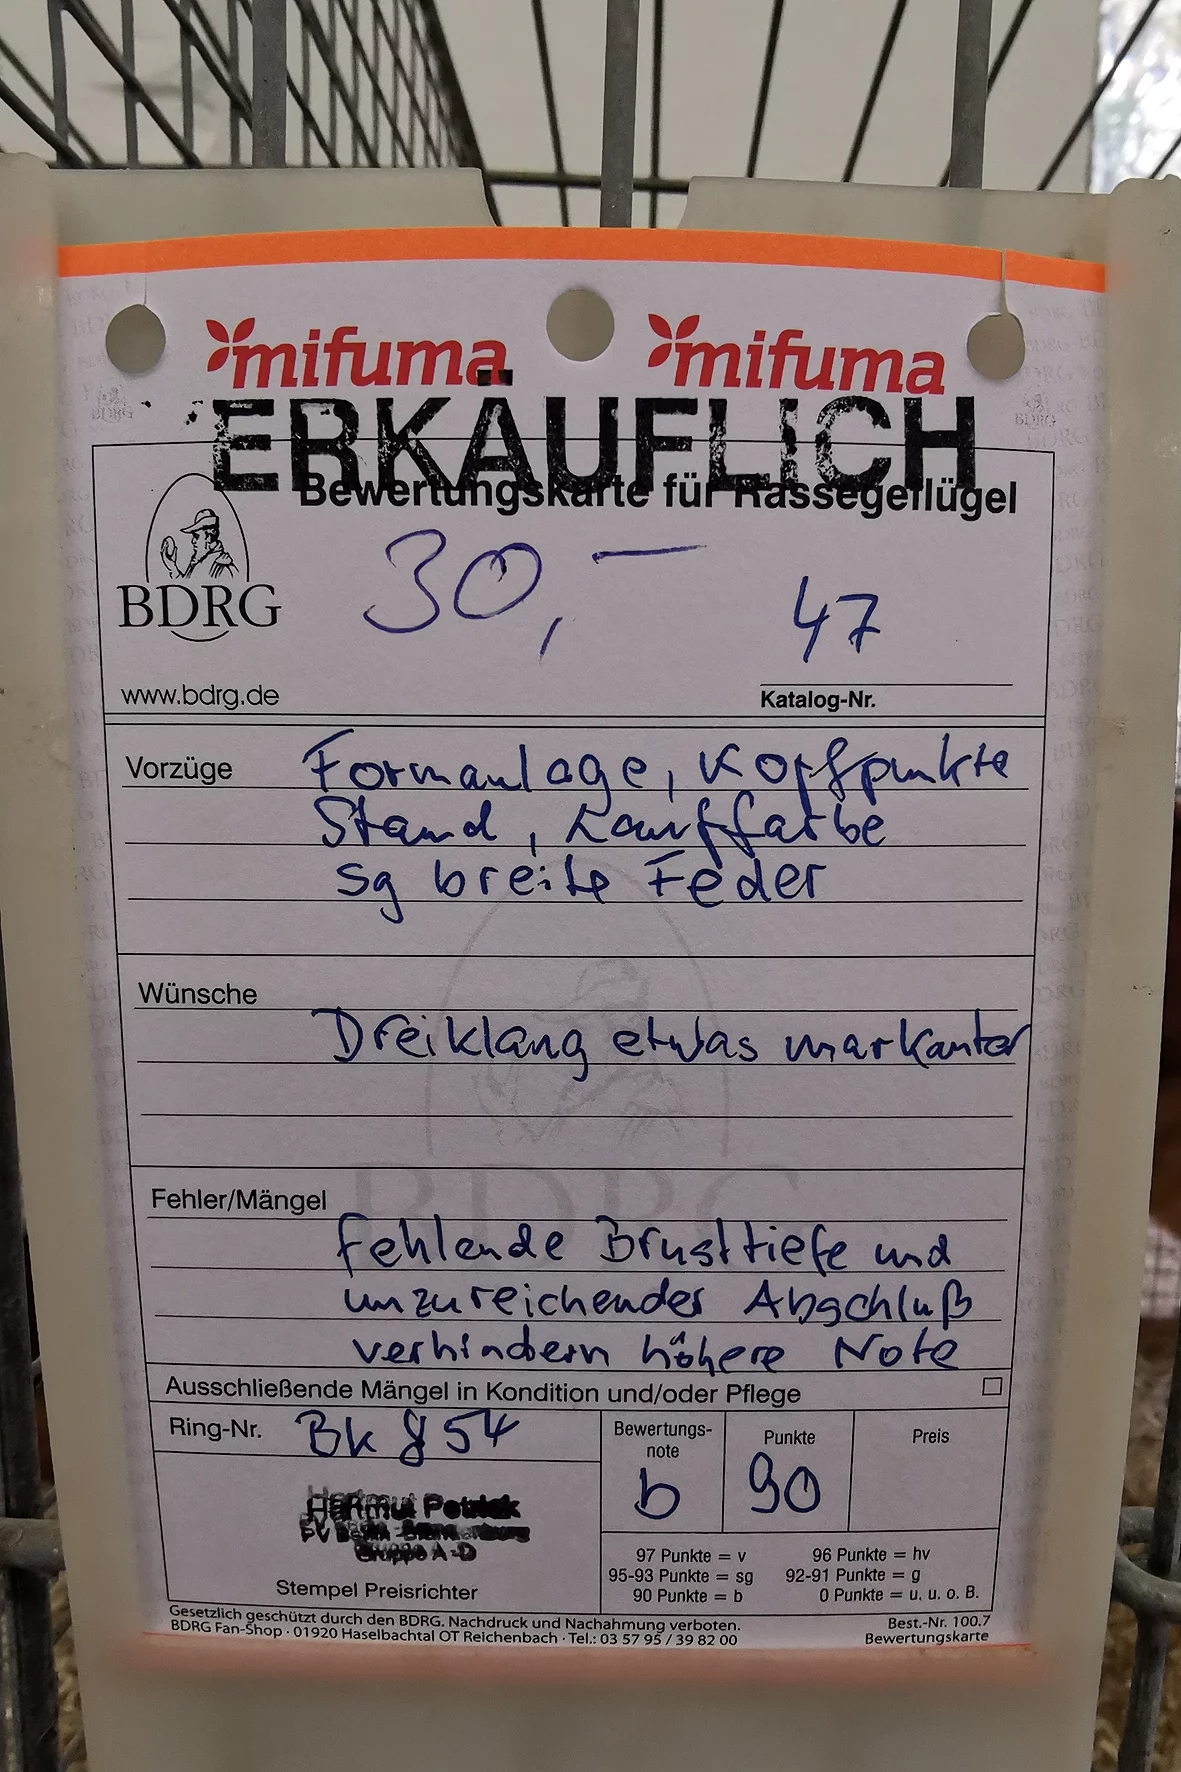 mifuma mifuma
ERKÄUFLICH
Bewertungskarte für Rassegeflügel
BDRG
30,—
47
www.bdrg.de
Katalog-Nr.
Vorzüge Formanlage, Kopfpunkte
Stand, Lauffarbe
sg breite Feder
Wünsche
Dreiklang etwas markanter
Fehler/Mängel
fehlende Brusttiefe und
unzureichender Abschluß
verhindern höhere Note
Ausschließende Mängel in Kondition und/oder Pflege
Ring-Nr. 54
Bewertungs-
note
b
Punkte
90
Preis
Hartmut Petrick
Gruppe A-D
Stempel Preisrichter
97 Punkte = v 96 Punkte = hv
95-93 Punkte = sg 92-91 Punkte = g
90 Punkte = b 0 Punkte = u. u. o. B.
Gesetzlich geschützt durch den BDRG. Nachdruck und Nachahmung verboten.
BDRG Fan-Shop · 01920 Haselbachtal OT Reichenbach · Tel.: 03 57 95 / 39 82 00
Best.-Nr. 100.7
Bewertungskarte